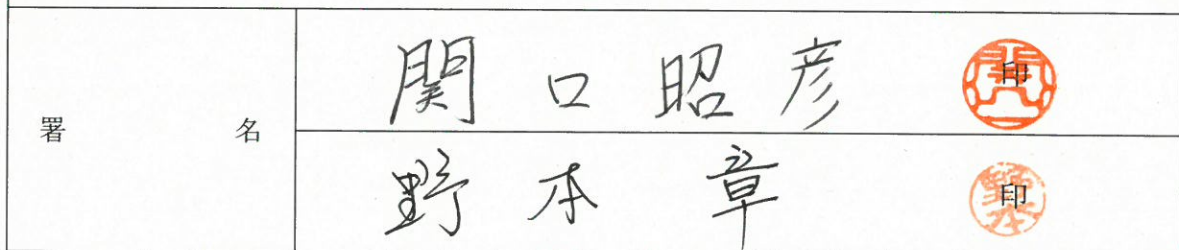 署名
関口昭彦 印
野本章 印
野本